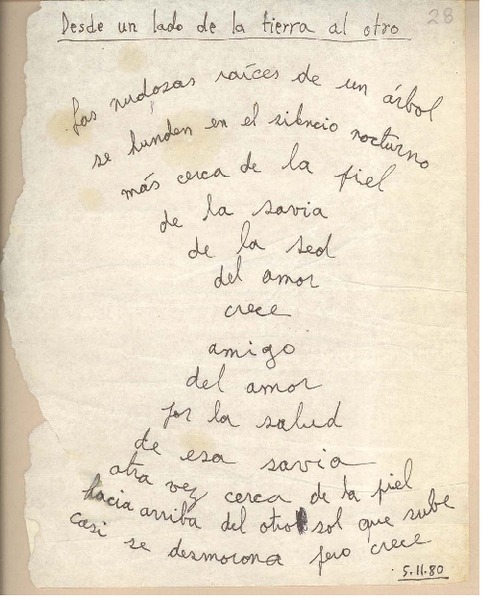 28
Desde un lado de la tierra al otro
Las nudozas raíces de un árbol
se hunden en el silencio nocturno
más cerca de la piel
de la savia
de la sed
del amor
crece
amigo
del amor
por la salud
de esa savia
otra vez cerca de la piel
hacia arriba del otro sol que sube
casi se desmorona pero crece
5.11.80